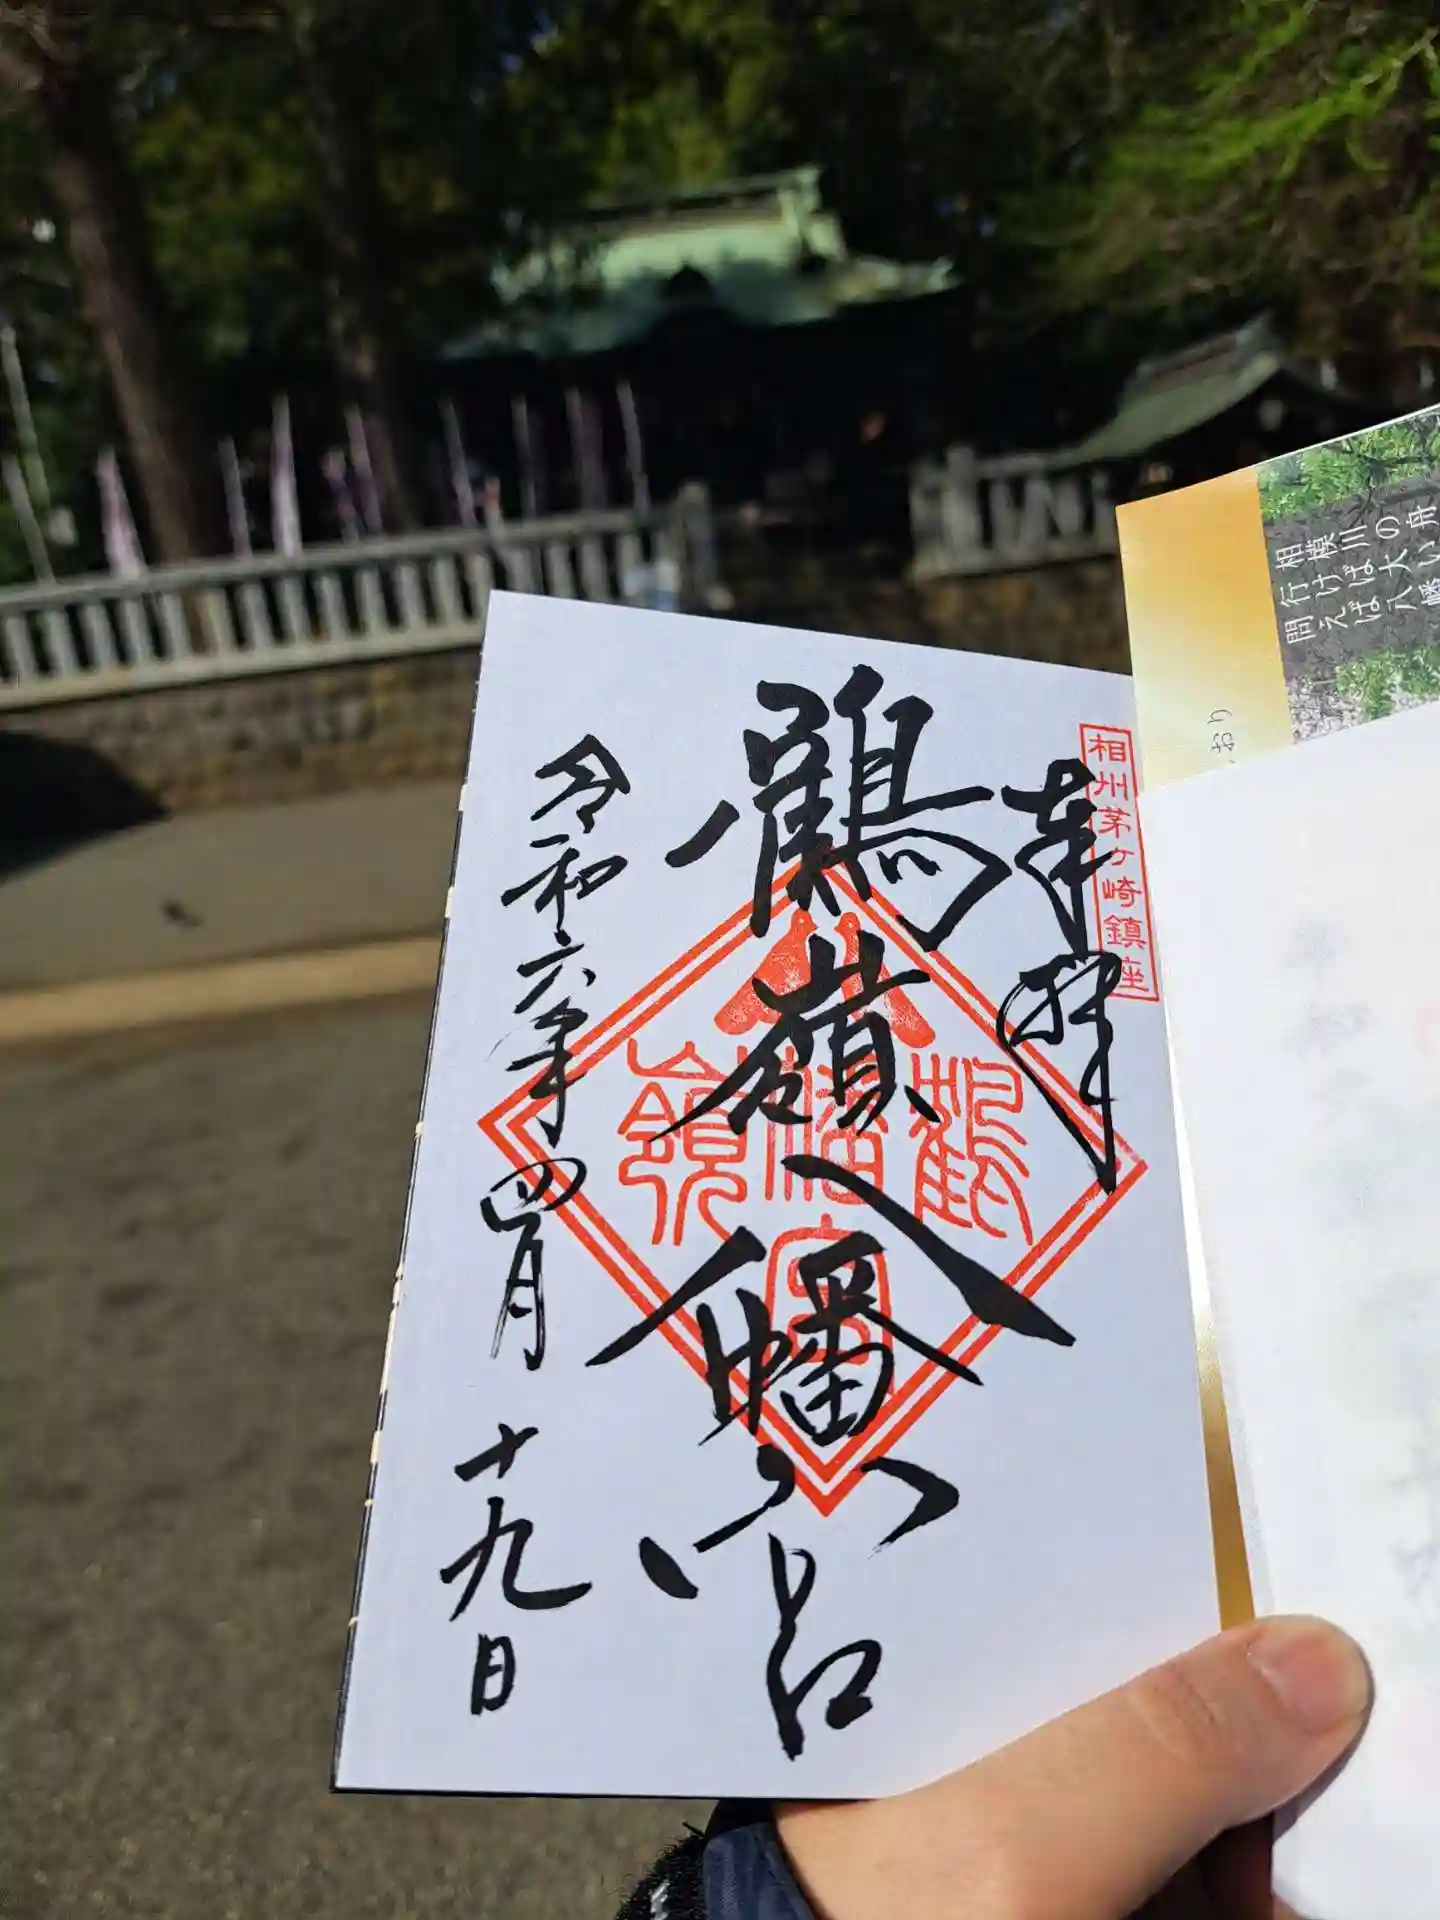 相州茅ヶ崎鎮座
奉拝
鶴嶺八幡宮
鶴
幡
嶺
宮
令和六年四月十九日
相模川の舟
行けば大い
問えば八幡
おり